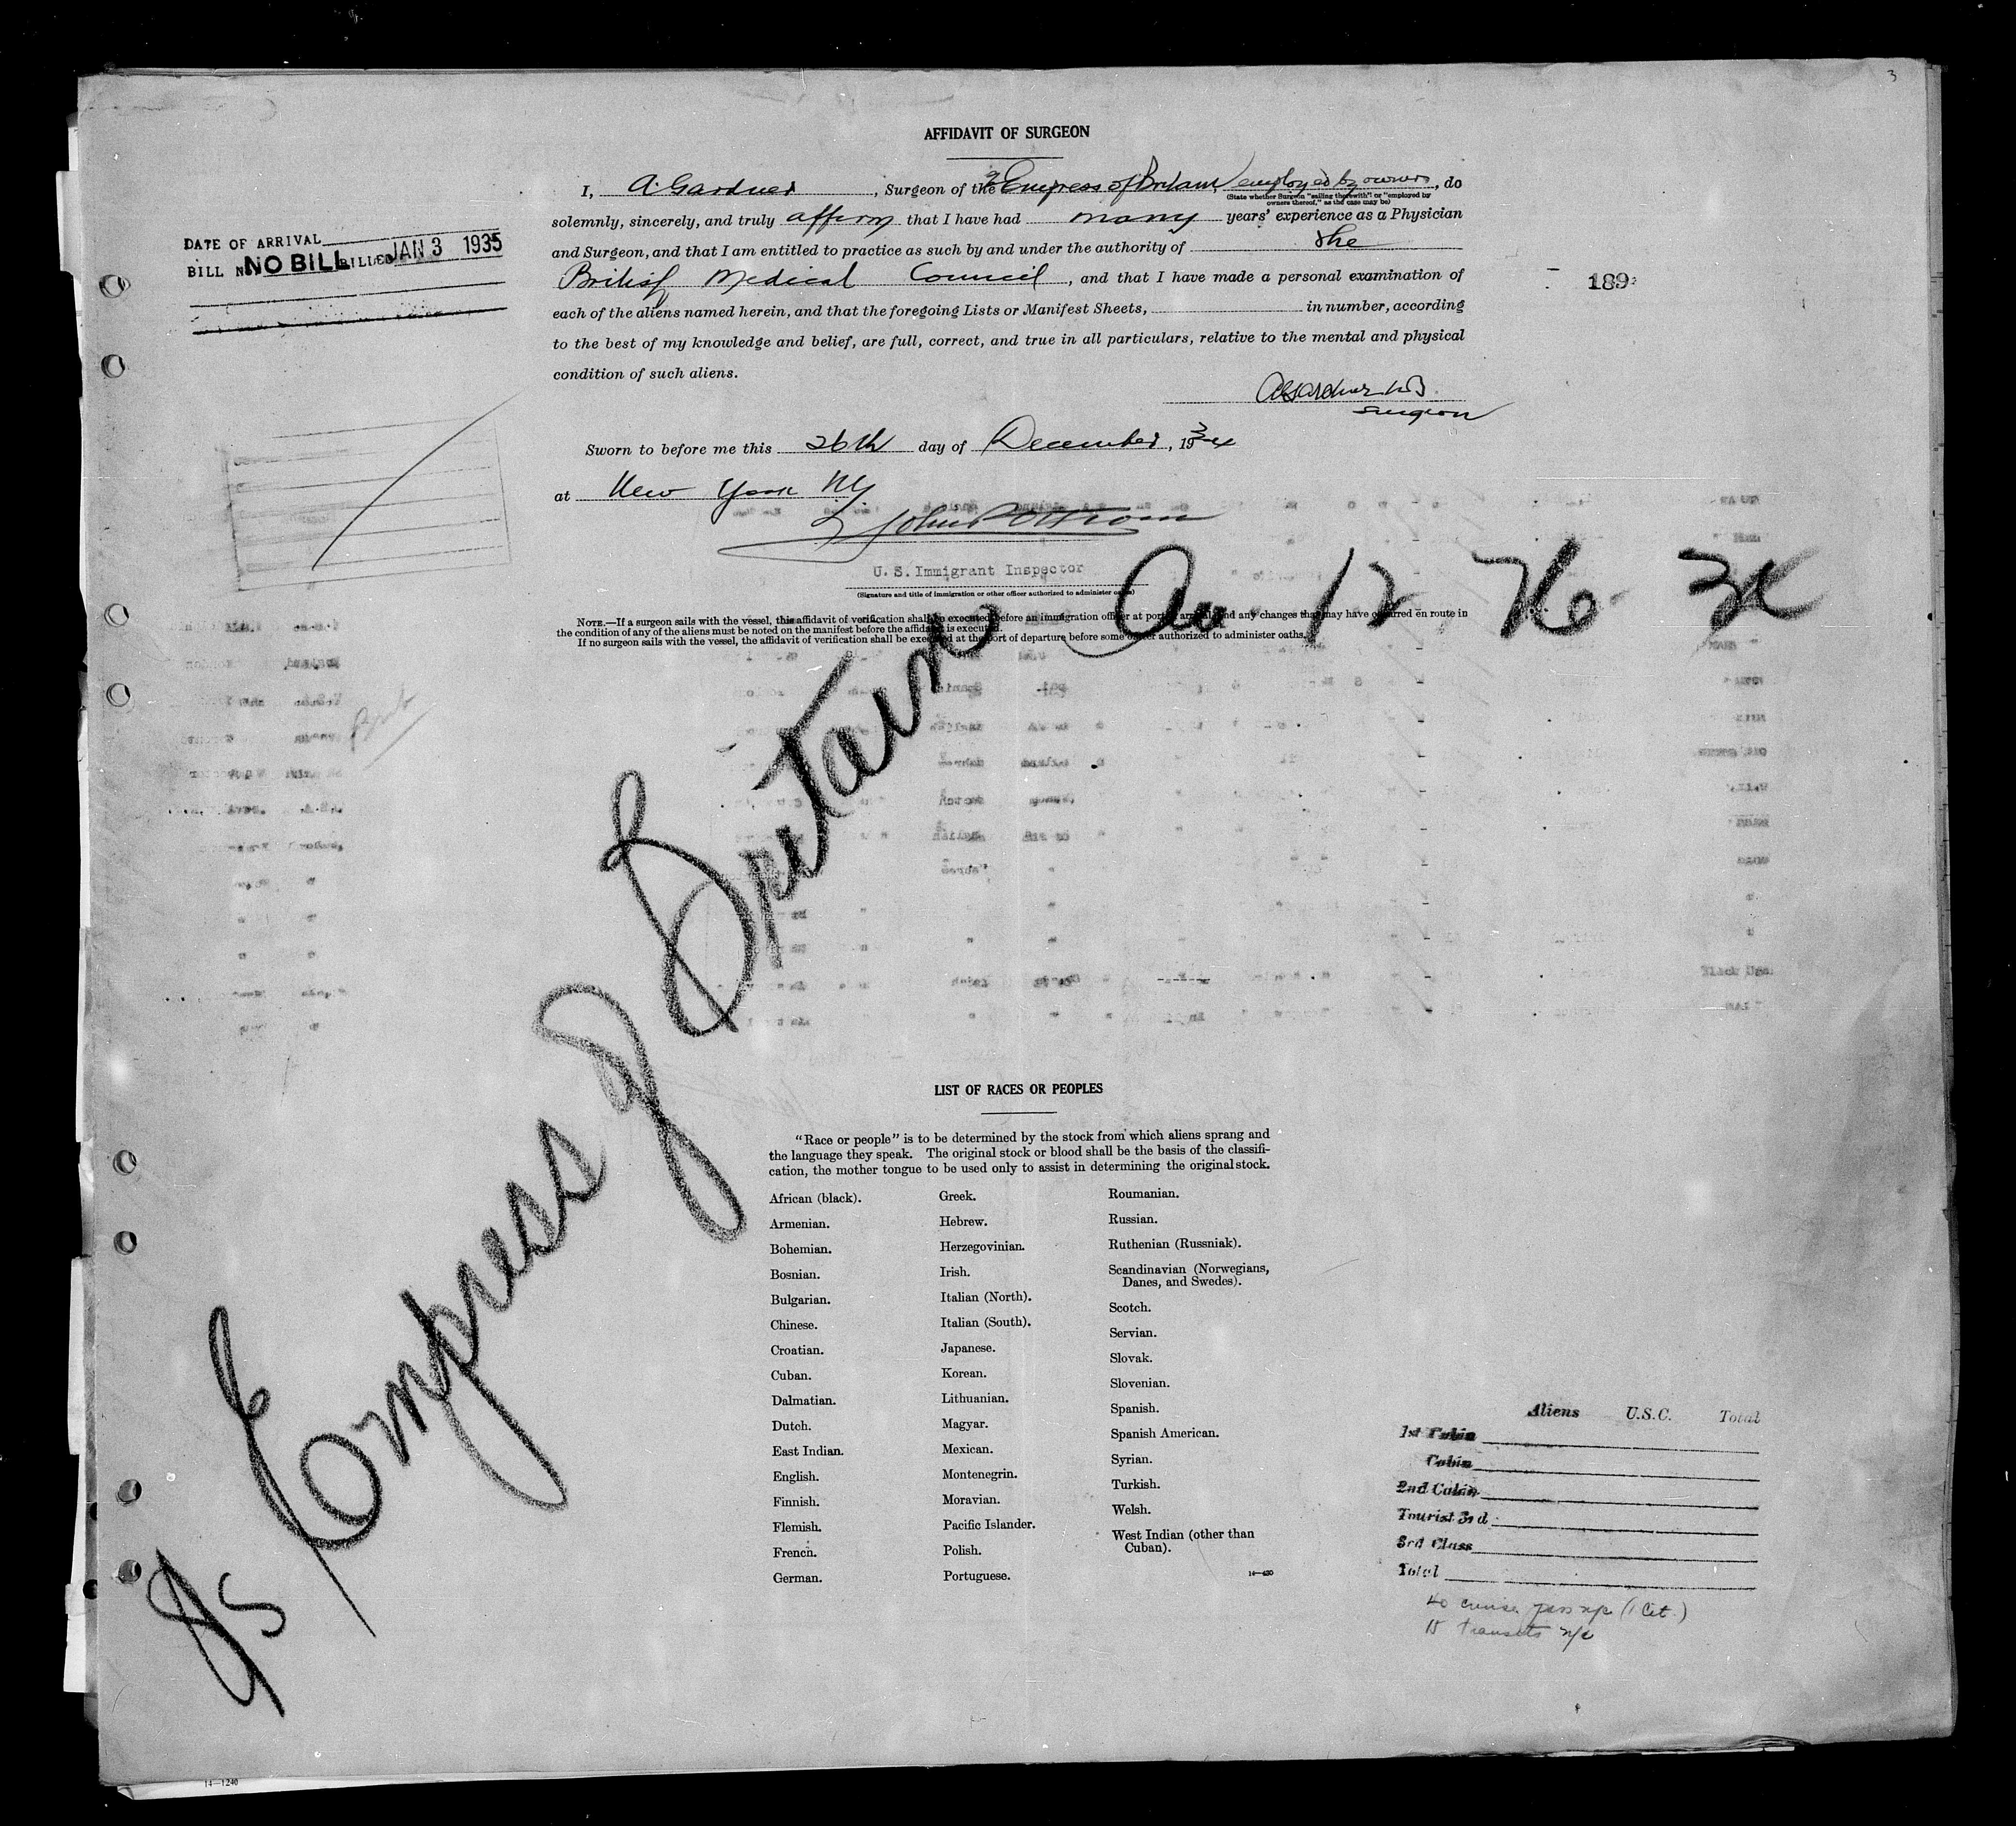 3
AFFIDAVIT OF SURGEON
I, A. Gardner, Surgeon of the Empress of Britain employed by owners, do
(State whether Surgeon "sailing therewith" or "employed by
owners thereof," as the case may be)
solemnly, sincerely, and truly affirm that I have had many years' experience as a Physician
and Surgeon, and that I am entitled to practice as such by and under the authority of the
British Medical Council, and that I have made a personal examination of
each of the aliens named herein, and that the foregoing Lists or Manifest Sheets, in number, according
to the best of my knowledge and belief, are full, correct, and true in all particulars, relative to the mental and physical
condition of such aliens.
Surgeon
Sworn to before me this 26th day of December, 1934
at New York NY
U. S. Immigrant Inspector
(Signature and title of immigration or other officer authorized to administer oaths)
NOTE.—If a surgeon sails with the vessel, this affidavit of verification shall be executed before an immigration officer at port of arrival and any changes that may have occurred en route in
the condition of any of the aliens must be noted on the manifest before the affidavit is executed.
If no surgeon sails with the vessel, the affidavit of verification shall be executed at the port of departure before some officer authorized to administer oaths.
DATE OF ARRIVAL
BILL NO BILL BILLED JAN 3 1935
189
SS Empress of Britain
12 26 34
LIST OF RACES OR PEOPLES
"Race or people" is to be determined by the stock from which aliens sprang and
the language they speak. The original stock or blood shall be the basis of the classifi-
cation, the mother tongue to be used only to assist in determining the original stock.
African (black).
Armenian.
Bohemian.
Bosnian.
Bulgarian.
Chinese.
Croatian.
Cuban.
Dalmatian.
Dutch.
East Indian.
English.
Finnish.
Flemish.
French.
German.
Greek.
Hebrew.
Herzegovinian.
Irish.
Italian (North).
Italian (South).
Japanese.
Korean.
Lithuanian.
Magyar.
Mexican.
Montenegrin.
Moravian.
Pacific Islander.
Polish.
Portuguese.
Roumanian.
Russian.
Ruthenian (Russniak).
Scandinavian (Norwegians,
Danes, and Swedes).
Scotch.
Servian.
Slovak.
Slovenian.
Spanish.
Spanish American.
Syrian.
Turkish.
Welsh.
West Indian (other than
Cuban).
14—430
Aliens U.S.C. Total
1st Cabin
Cabin
2nd Cabin
Tourist 3rd
3rd Class
Total
40 cruise (1 Cit.)
15 transits
14—1240